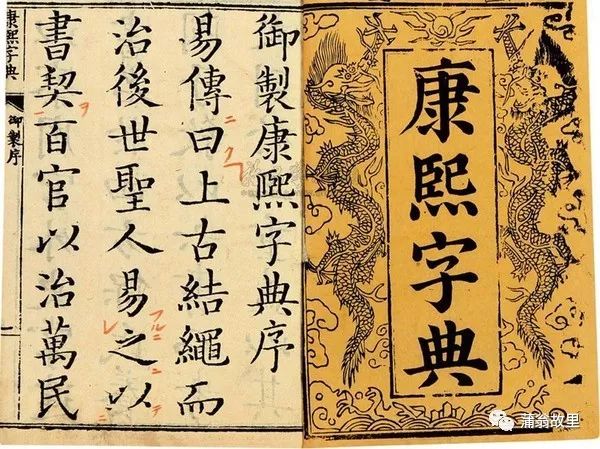 康熙字典
御製康熙字典序
易傳曰上古結繩而
治後世聖人易之以
書契百官以治萬民
康熙字典
御製序
蒲翁故里